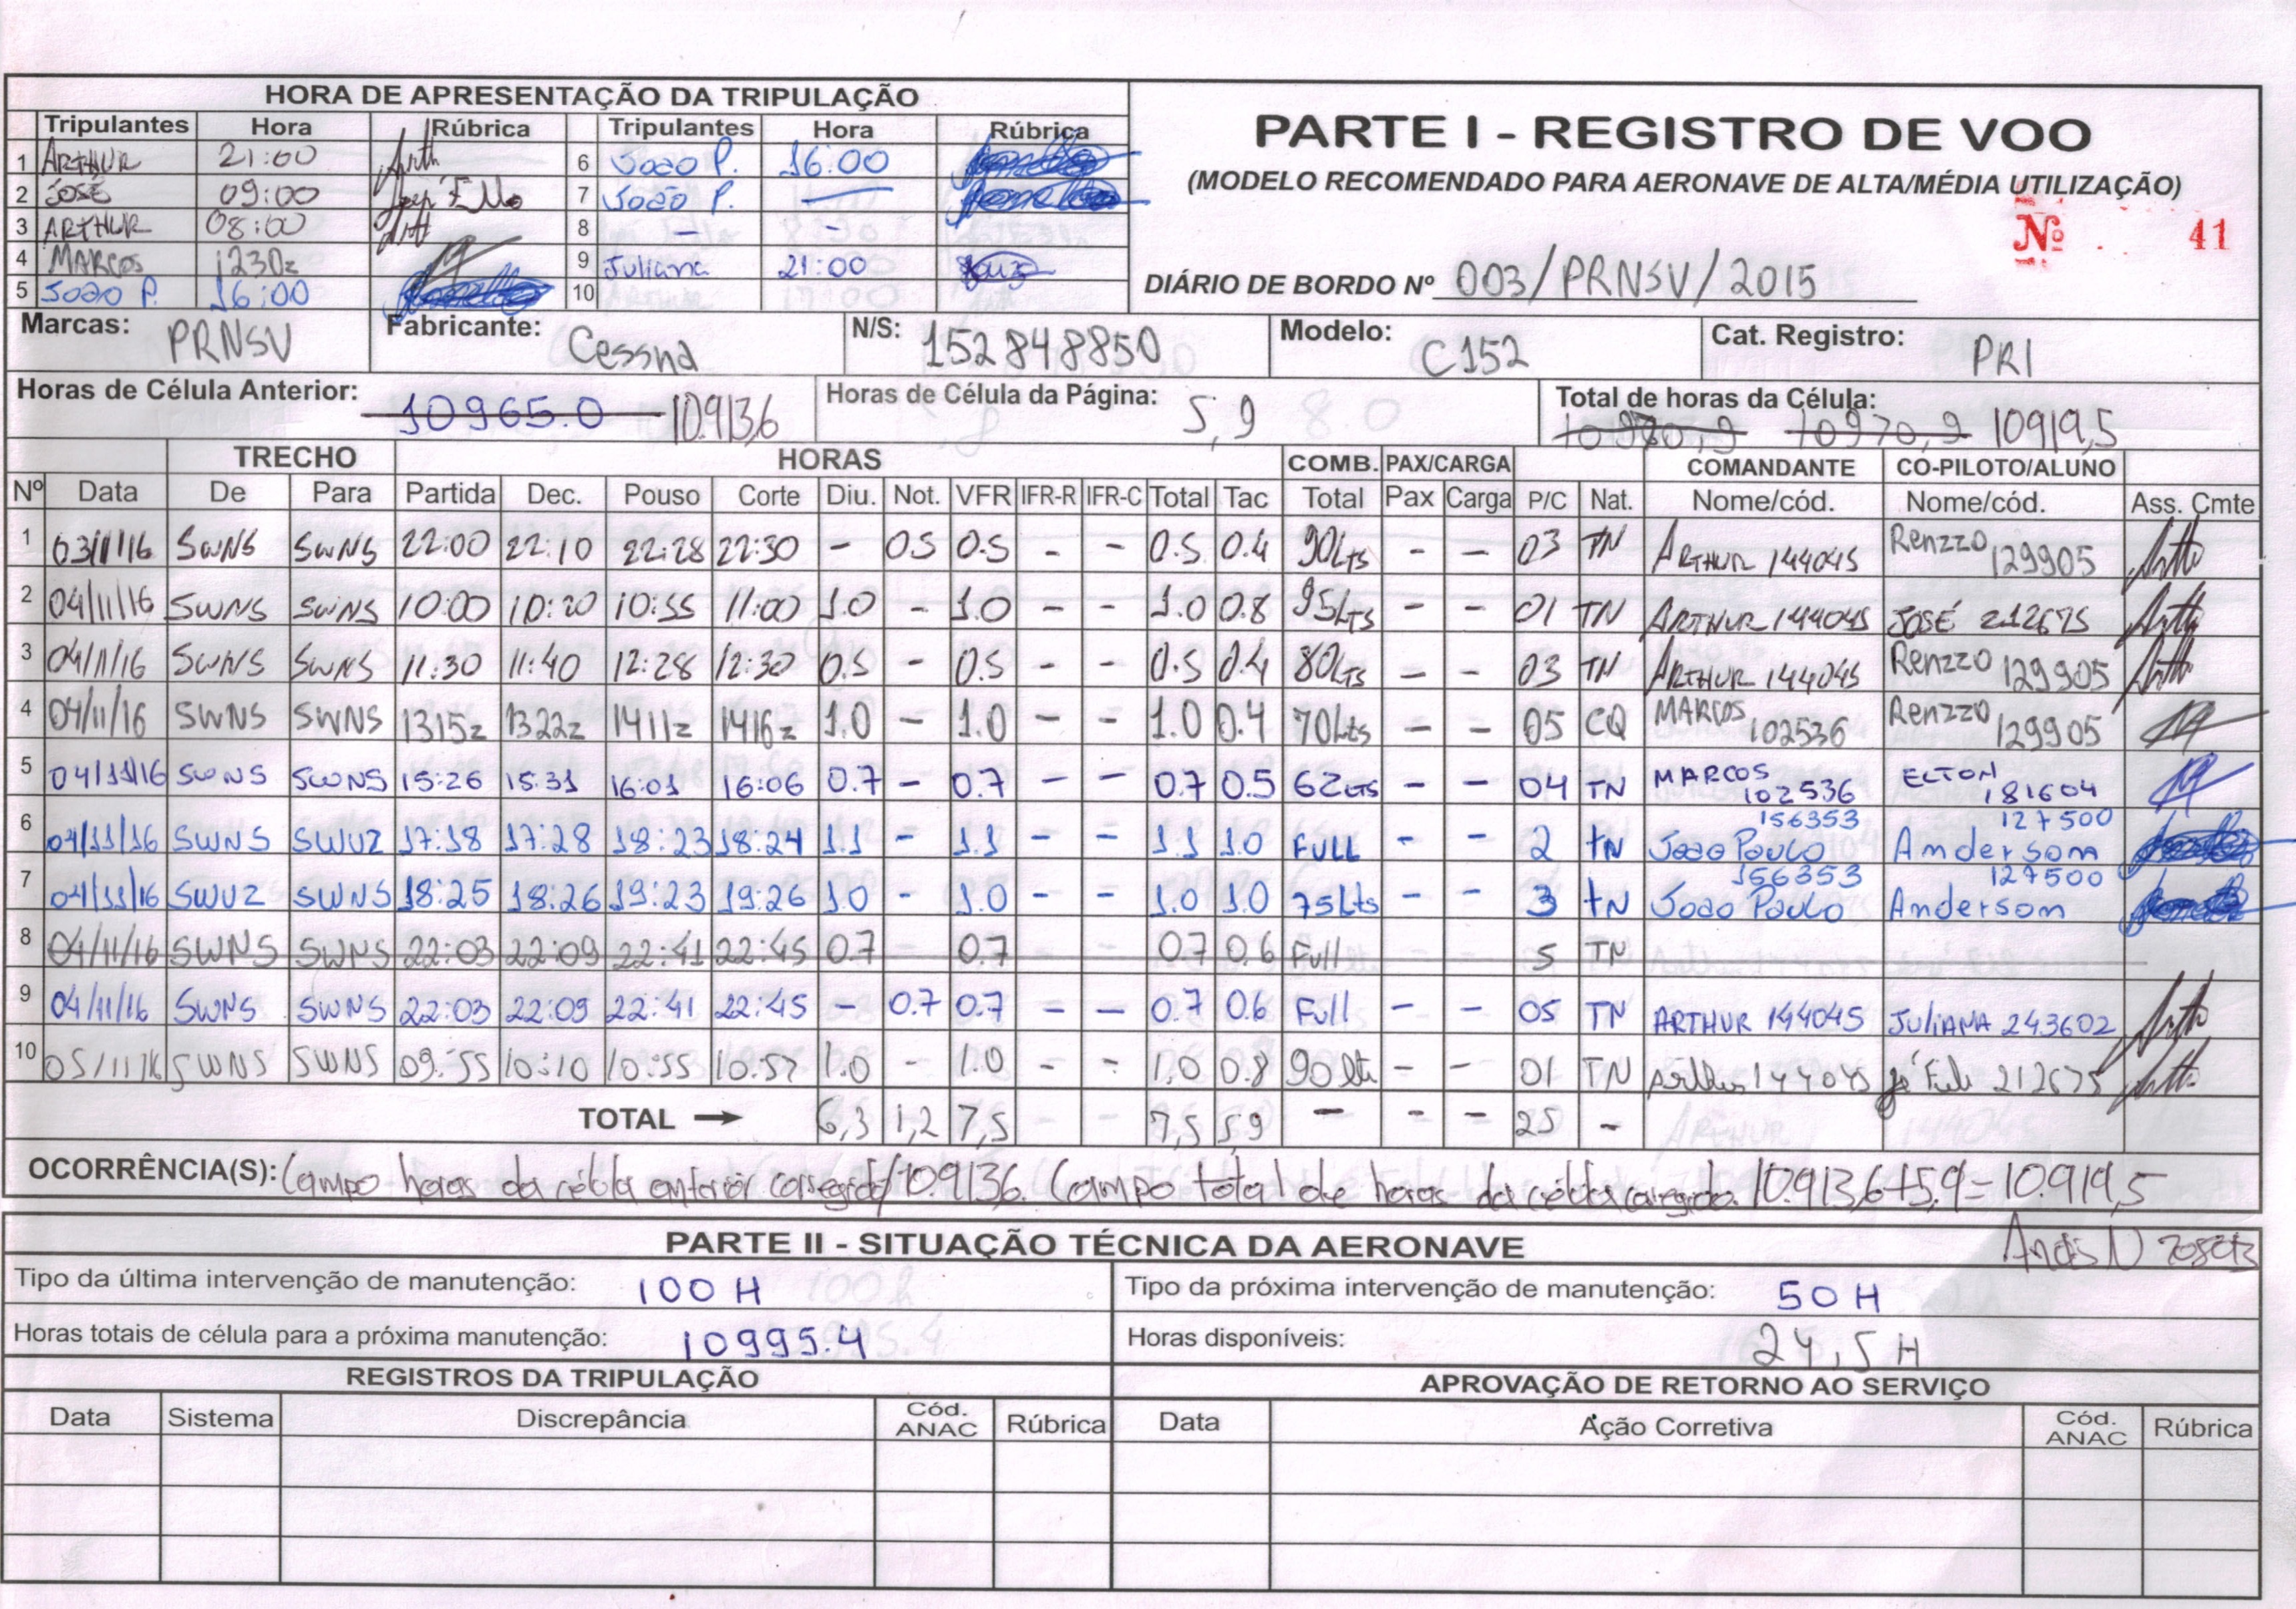 HORA DE APRESENTAÇÃO DA TRIPULAÇÃO
Tripulantes Hora Rúbrica Tripulantes Hora Rúbrica
1 ARTHUR 21:00 6 João P. 16:00
2 JOSÉ 09:00 7 João P. —
3 ARTHUR 08:00 8 - -
4 MARCOS 1230z 9 Juliana 21:00
5 João P. 16:00 10
PARTE I - REGISTRO DE VOO
(MODELO RECOMENDADO PARA AERONAVE DE ALTA/MÉDIA UTILIZAÇÃO)
Nº 41
DIÁRIO DE BORDO Nº 003/PRNSV/2015
Marcas: PRNSV Fabricante: Cessna N/S: 152848850 Modelo: C152 Cat. Registro: PRI
Horas de Célula Anterior: 10965.0 10.913,6 Horas de Célula da Página: 5,9 Total de horas da Célula: 10970,9 10970,9 10919,5
TRECHO HORAS COMB. PAX/CARGA COMANDANTE CO-PILOTO/ALUNO
Nº Data De Para Partida Dec. Pouso Corte Diu. Not. VFR IFR-R IFR-C Total Tac Total Pax Carga P/C Nat. Nome/cód. Nome/cód. Ass. Cmte
1 03/11/16 SWNS SWNS 22:00 22:10 22:28 22:30 - 0.5 0.5 - - 0.5 0.4 90Lts - - 03 TN ARTHUR 144045 Renzzo 129905
2 04/11/16 SWNS SWNS 10:00 10:20 10:55 11:00 1.0 - 1.0 - - 1.0 0.8 95Lts - - 01 TN ARTHUR 144045 JOSÉ 212675
3 04/11/16 SWNS SWNS 11:30 11:40 12:28 12:30 0.5 - 0.5 - - 0.5 0.4 80Lts - - 03 TN ARTHUR 144045 Renzzo 129905
4 04/11/16 SWNS SWNS 1315z 1322z 1411z 1416z 1.0 - 1.0 - - 1.0 0.4 70Lts - - 05 CQ MARCOS 102536 Renzzo 129905
5 04/11/16 SWNS SWNS 15:26 15:31 16:01 16:06 0.7 - 0.7 - - 0.7 0.5 62Lts - - 04 TN MARCOS 102536 ELTON 181604
6 04/11/16 SWNS SWUZ 17:18 17:28 18:23 18:24 1.1 - 1.1 - - 1.1 1.0 FULL - - 2 TN João Paulo 156353 Anderson 127500
7 04/11/16 SWUZ SWNS 18:25 18:26 19:23 19:26 1.0 - 1.0 - - 1.0 1.0 75Lts - - 3 TN João Paulo 156353 Anderson 127500
8 04/11/16 SWNS SWNS 22:03 22:09 22:41 22:45 0.7 0.7 0.7 0.6 Full 5 TN
9 04/11/16 SWNS SWNS 22:03 22:09 22:41 22:45 - 0.7 0.7 - - 0.7 0.6 Full - - 05 TN ARTHUR 144045 JULIANA 243602
10 05/11/16 SWNS SWNS 09:55 10:10 10:55 10:57 1.0 - 1.0 - - 1.0 0.8 90 lts - - 01 TN Arthur 144045 212675
TOTAL → 6,3 1,2 7,5 7,5 5,9 - - - 25 -
OCORRÊNCIA(S): Campo horas da célula anterior corrigido 10.913,6. Campo total de horas da célula corrigido. 10.913,6+5,9=10.919,5
PARTE II - SITUAÇÃO TÉCNICA DA AERONAVE
Tipo da última intervenção de manutenção: 100 H Tipo da próxima intervenção de manutenção: 50 H
Horas totais de célula para a próxima manutenção: 10995.4 Horas disponíveis: 24,5 H
REGISTROS DA TRIPULAÇÃO APROVAÇÃO DE RETORNO AO SERVIÇO
Data Sistema Discrepância Cód. ANAC Rúbrica Data Ação Corretiva Cód. ANAC Rúbrica